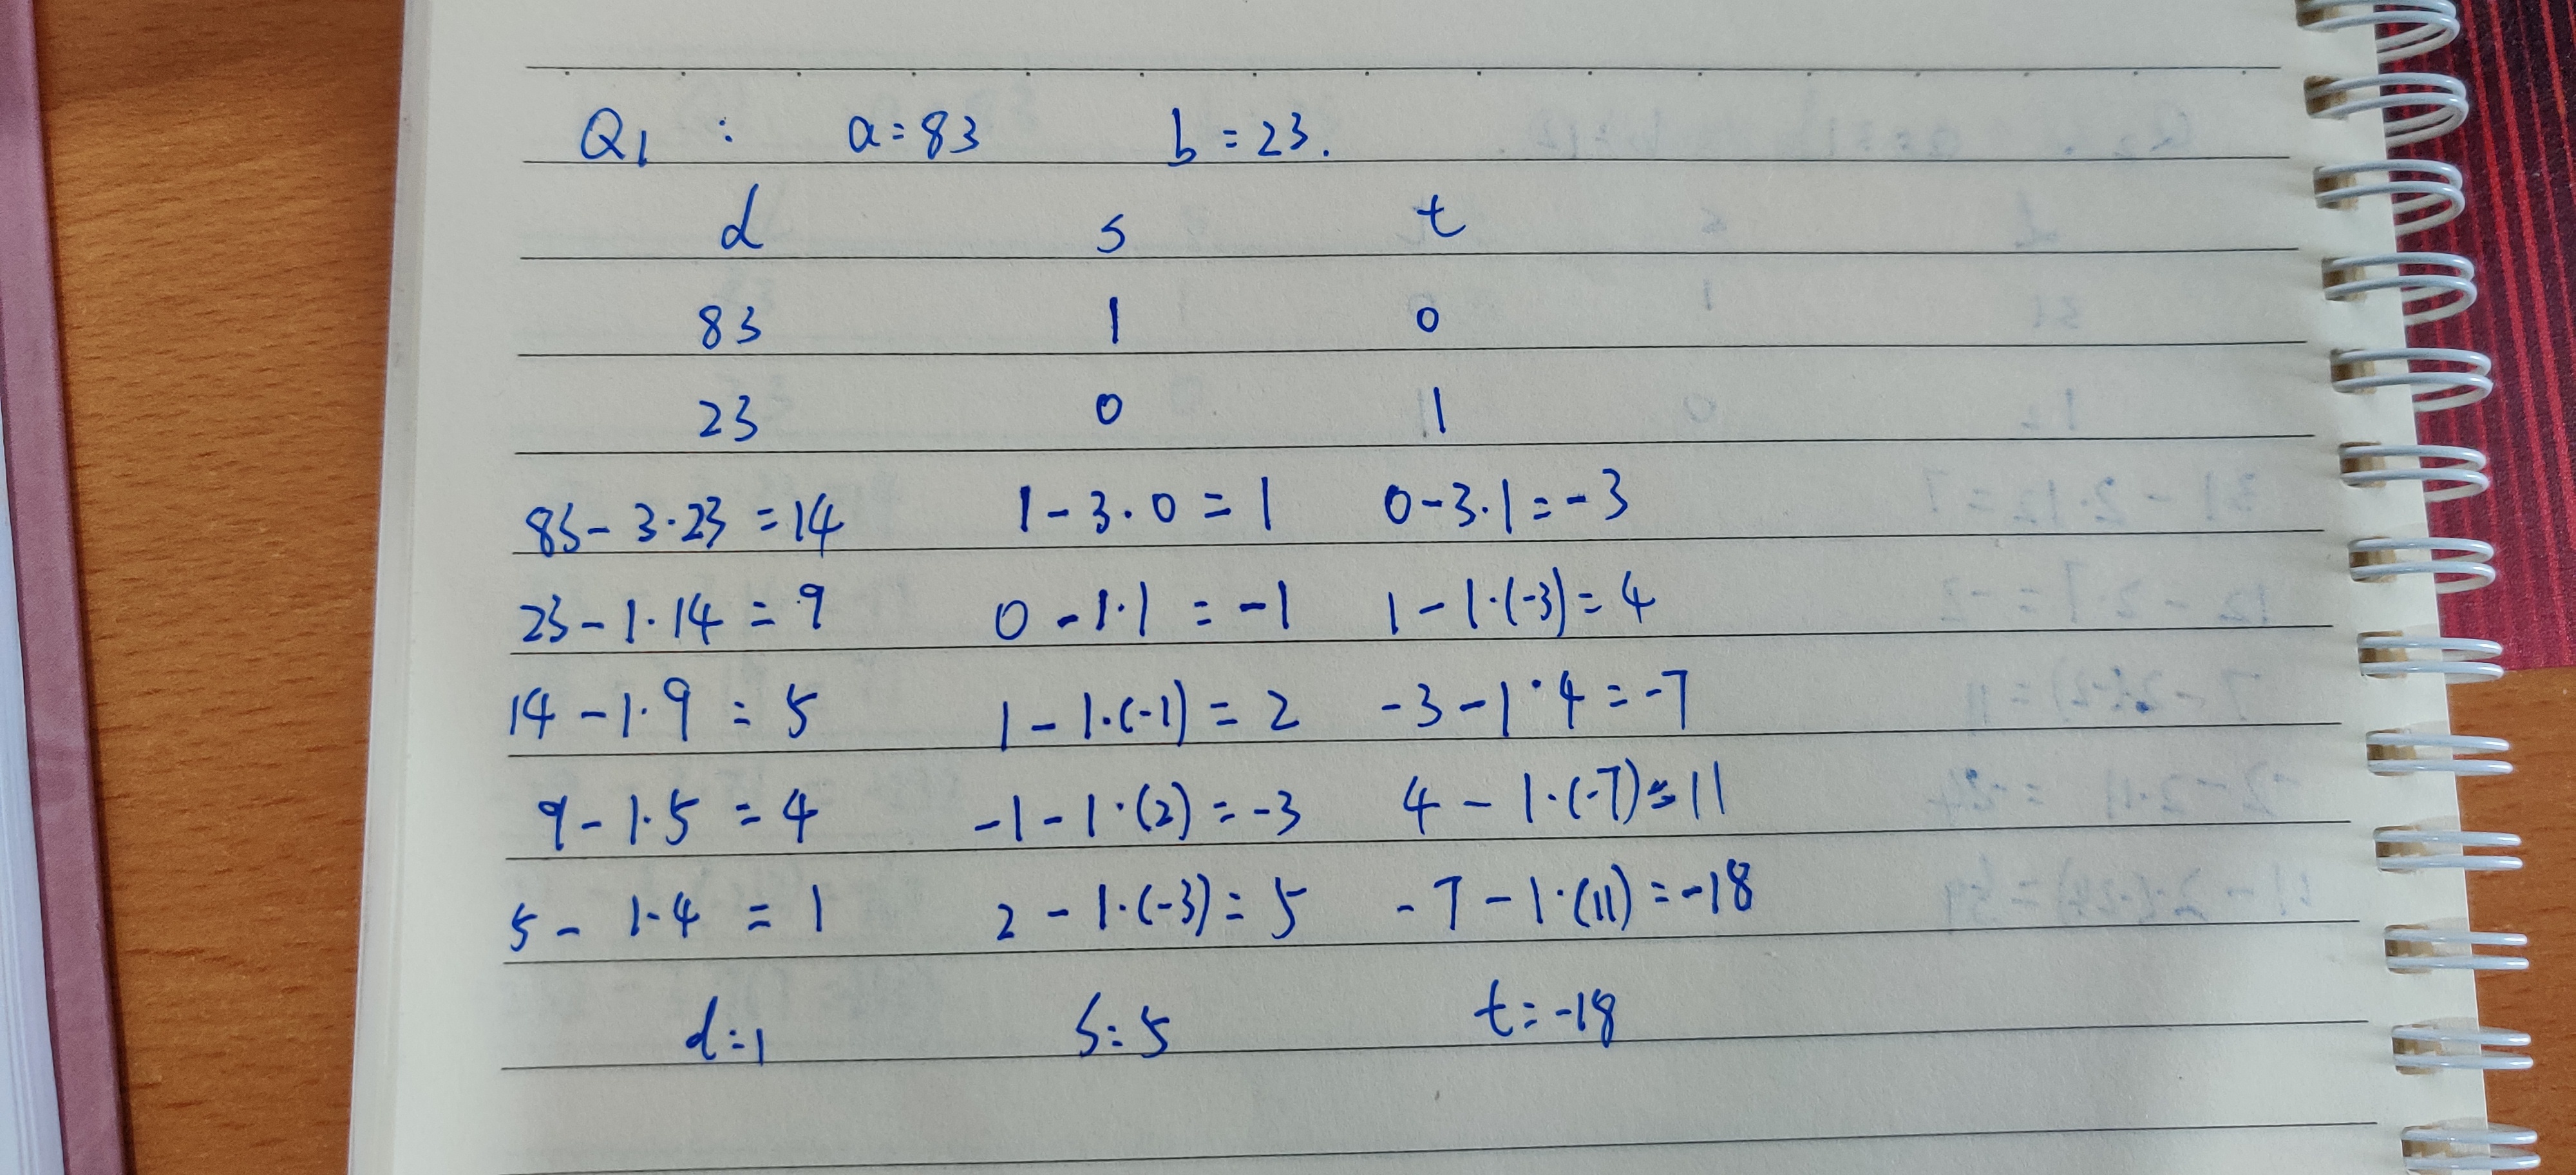 Q1 : a=83 b=23.
d s t
83 1 0
23 0 1
83-3·23=14 1-3·0=1 0-3·1=-3
23-1·14=9 0-1·1=-1 1-1·(-3)=4
14-1·9=5 1-1·(-1)=2 -3-1·4=-7
9-1·5=4 -1-1·(2)=-3 4-1·(-7)=11
5-1·4=1 2-1·(-3)=5 -7-1·(11)=-18
d=1 s=5 t=-18